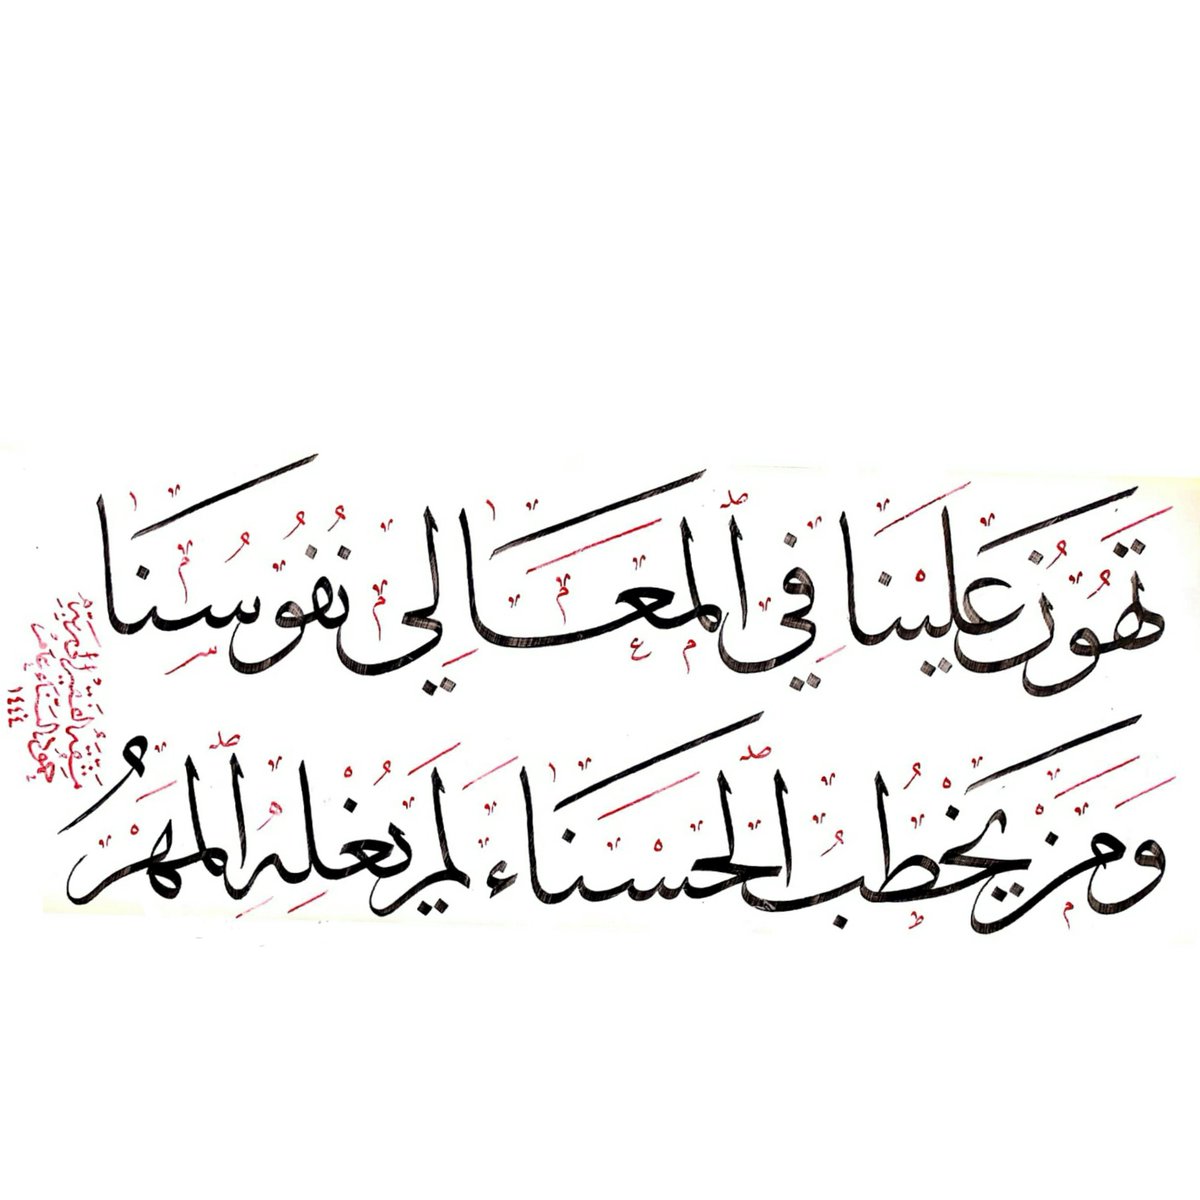 تَهُونُ عَلَيْنَا فِي ٱلْمَعَالِي نُفُوسُنَا
وَمَنْ يَخْطُبُ ٱلْحَسْنَاءَ لَمْ يُغْلِهِ ٱلْمَهْرُ
١٤٤٤